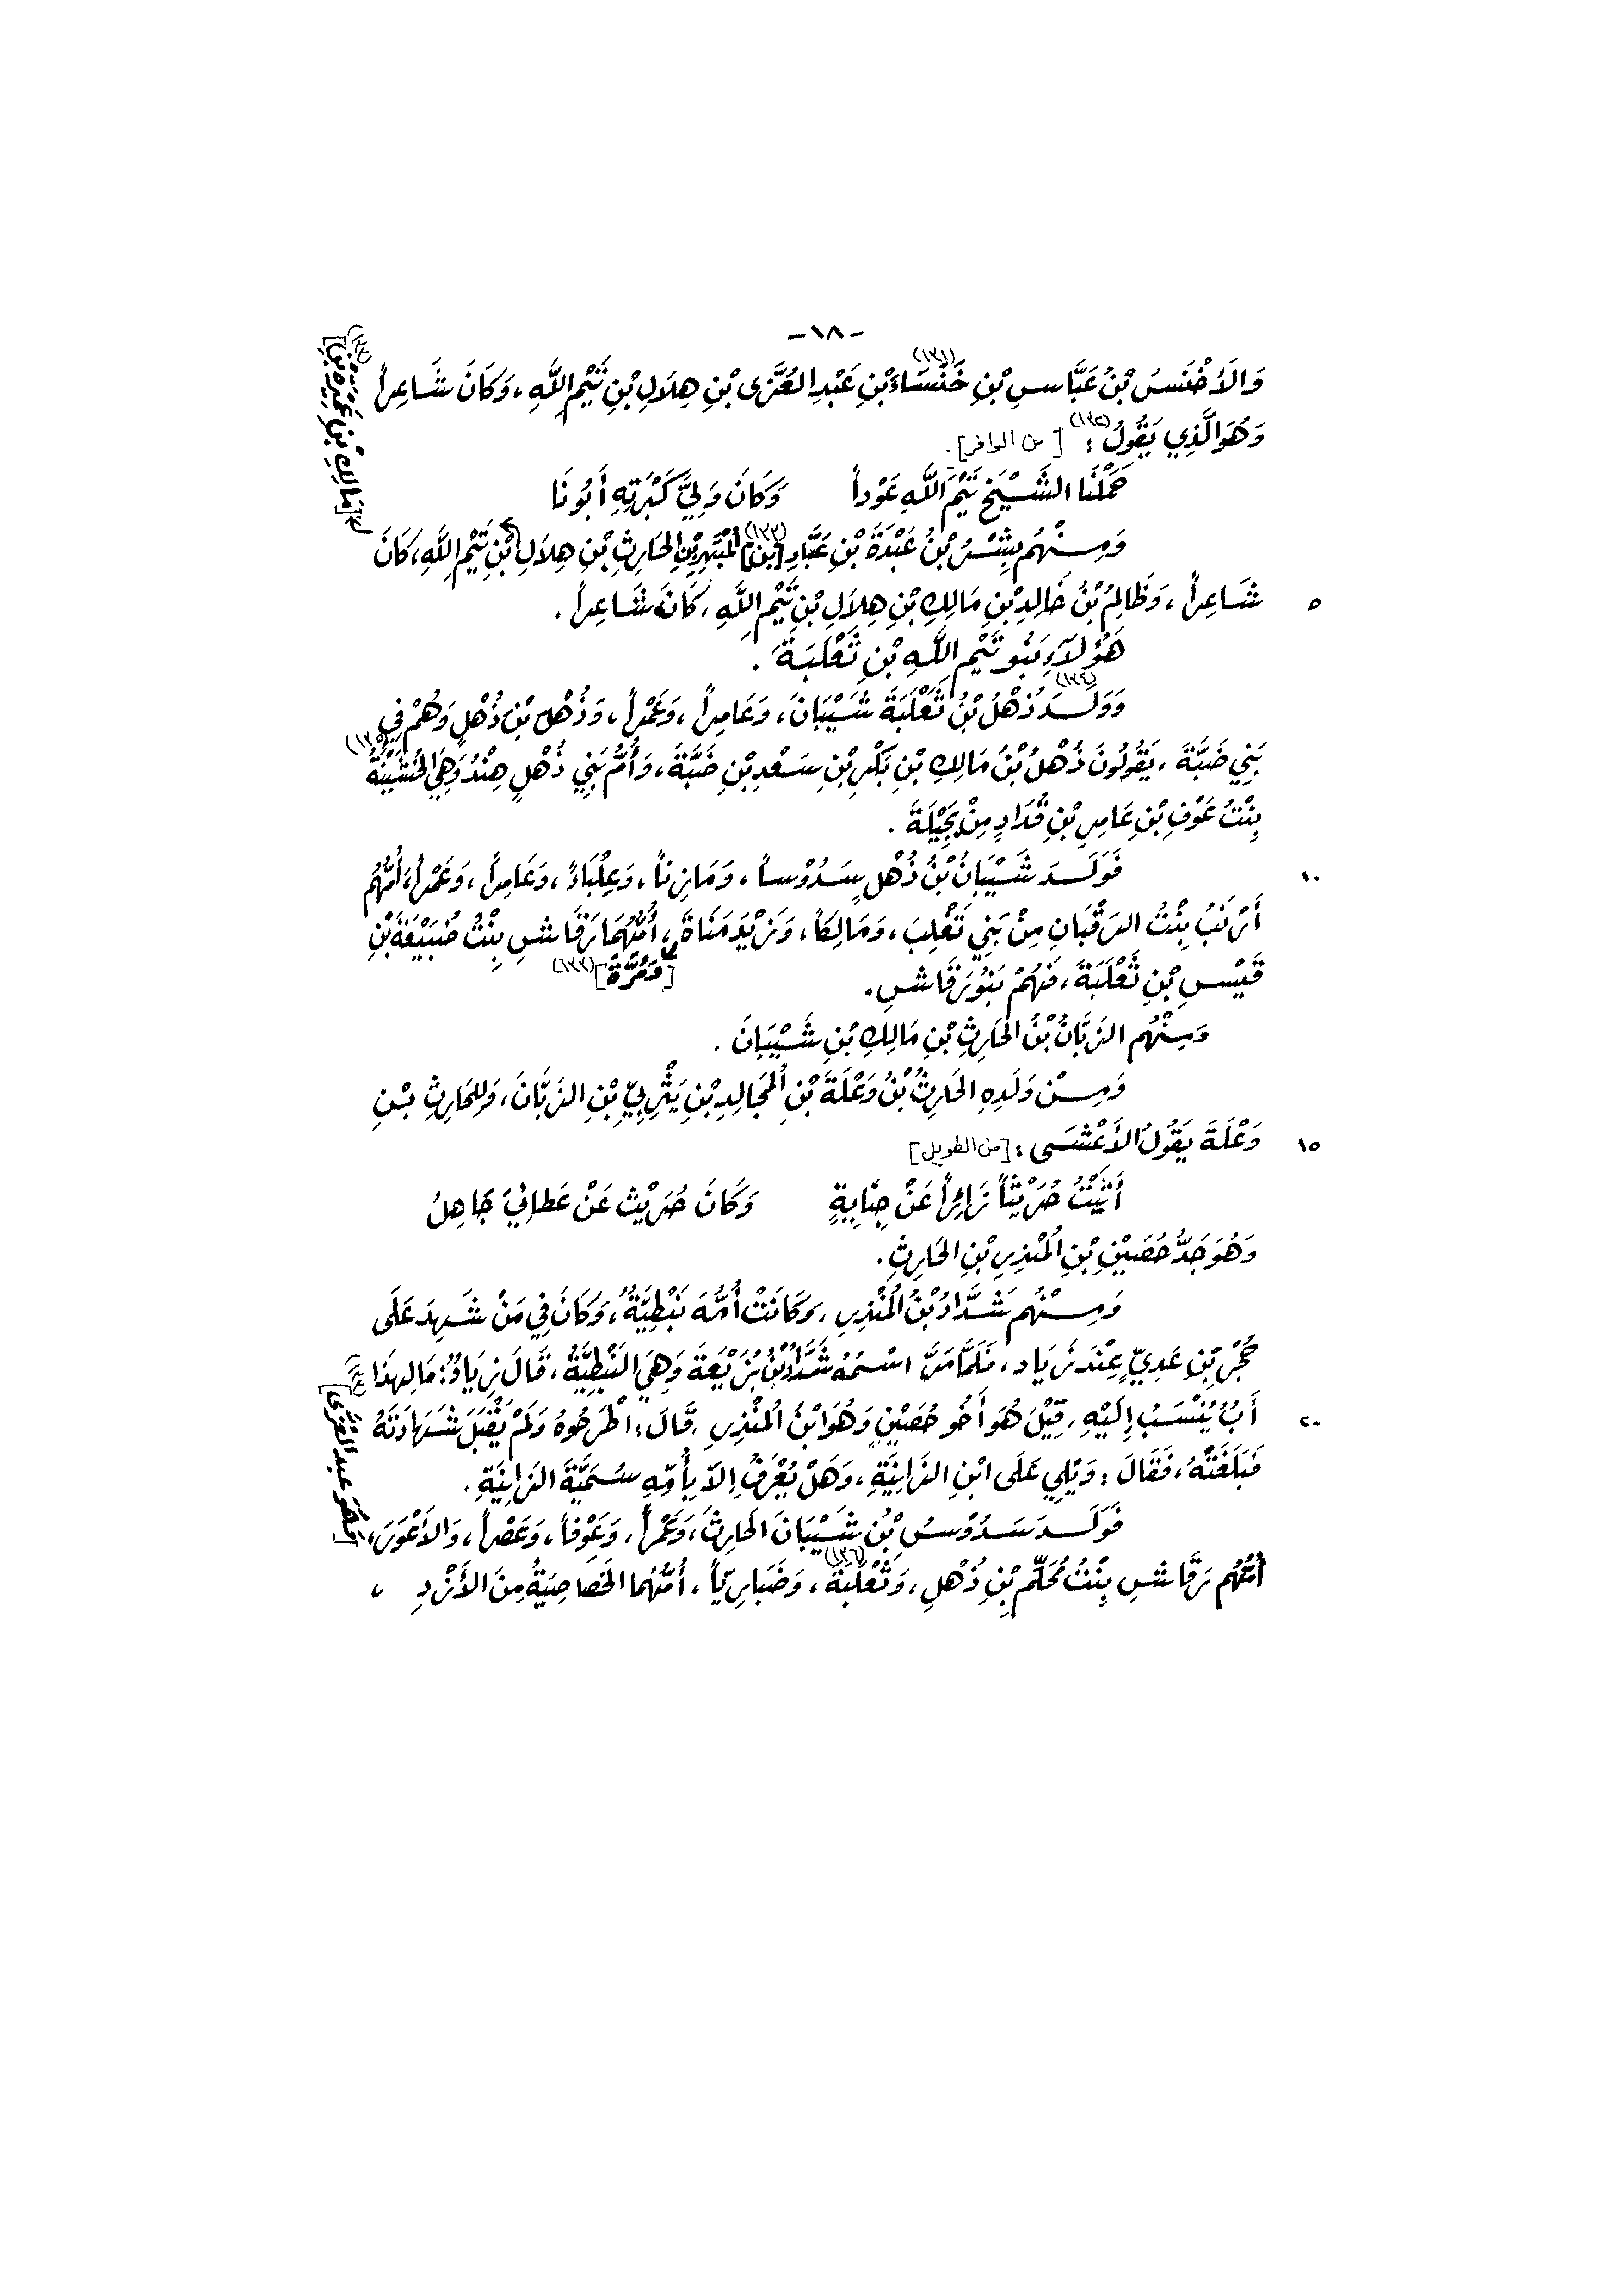 -١٨-
وَالأَخْنَسُ بْنُ عَبَّاسِ بْنِ خَنْسَاءَ بْنِ عَبْدِ العُزَّى بْنِ هِلاَلِ بْنِ تَيْمِ اللَّهِ، وَكَانَ شَاعِراً
وَهُوَ الَّذِي يَقُولُ: [من الوافر].
حَمَلْنَا الشَّيْخَ تَيْمَ اللَّهِ عَوْداً وَكَانَ وَلِيَّ كَبْرَتِهِ أَبُونَا
وَمِنْهُم بِشْرُ بْنُ عَبْدَةَ بْنِ عَبَّادِ [بْنِ] (١٣٣) الحَارِثِ بْنِ هِلاَلِ بْنِ تَيْمِ اللَّهِ، كَانَ
٥ شَاعِراً، وَظَالِمُ بْنُ خَالِدِ بْنِ مَالِكِ بْنِ هِلاَلِ بْنِ تَيْمِ اللَّهِ، كَانَ شَاعِراً.
هَؤُلاَءِ بَنُو تَيْمِ اللَّهِ بْنِ ثَعْلَبَةَ.
وَوَلَدَ ذُهْلُ بْنُ ثَعْلَبَةَ شَيْبَانَ، وَعَامِراً، وَعَمْراً، وَذُهْلَ بْنَ ذُهْلٍ وَهُمْ فِي
بَنِي ضَبَّةَ، يَقُولُونَ ذُهْلُ بْنُ مَالِكِ بْنِ بَكْرِ بْنِ سَعْدِ بْنِ ضَبَّةَ، وَأُمُّ بَنِي ذُهْلٍ هِنْدُ وَهِيَ
بِنْتُ عَوْفِ بْنِ عَامِرِ بْنِ قُدَادٍ مِنْ بَجِيْلَةَ.
١٠ فَوَلَدَ شَيْبَانُ بْنُ ذُهْلٍ سَدُوْساً، وَمَازِناً، وَعِلْبَاءً، وَعَامِراً، وَعَمْراً، أُمُّهُم
أَرْنَبُ بِنْتُ الرَقْبَانِ مِنْ بَنِي تَغْلِبَ، وَمَالِكاً، وَزَيْدَ مَنَاةَ، أُمُّهُمَا رَقَاشِ بِنْتُ ضُبَيْعَةَ بْنِ
قَيْسِ بْنِ ثَعْلَبَةَ، فَهُمْ بَنُو رَقَاشِ. [وَمُرَّةَ]
وَمِنْهُم الزَبَّانُ بْنُ الحَارِثِ بْنِ مَالِكِ بْنِ شَيْبَانَ.
وَمِنْ وَلَدِهِ الحَارِثُ بْنُ وَعْلَةَ بْنِ المُجَالِدِ بْنِ يَثْرِبِيِّ بْنِ الزَبَّانَ، وَلِلحَارِثِ بْنِ
١٥ وَعْلَةَ يَقُولُ الأَعْشَى: [من الطويل]
أَتَيْتُ حُرَيْثاً زَائِراً عَنْ جِنَابِةٍ وَكَانَ حُرَيْثٌ عَنْ عَطَائِيَ جَاهِلُ
وَهُوَ جَدُّ حُصَيْنِ بْنِ المُنْذِرِ بْنِ الحَارِثِ.
وَمِنْهُم شَدَّادُ بْنُ المُنْذِرِ، وَكَانَتْ أُمُّهُ نَبْطِيَّةً، وَكَانَ فِي مَنْ شَهِدَ عَلَى
حُجْرِ بْنِ عَدِيٍّ عِنْدَ زِيَاد، فَلَمَّا مَرَّ اسْمُهُ شَدَّادُ بْنُ بُزَيْعَةَ وَهِيَ النَبْطِيَّةُ، قَالَ زِيَادٌ: مَا لِهَذَا
٢٠ أَبٌ يُنْسَبُ إِلَيْهِ، قِيْلَ هُوَ أَخُو حُصَيْنٍ وَهُوَ ابْنُ المُنْذِرِ، قَالَ: اطْرَحُوهُ وَلَمْ يَقْبَلَ شَهَادَتَهُ
فَبَلَغَتْهُ، فَقَالَ: وَيْلِي عَلَى ابْنِ الزَانِيَةِ، وَهَلْ يُعْرَفُ إِلاّ بِأُمِّهِ سُمَيَّةَ الزَانِيَةِ.
فَوَلَدَ سَدُوْسُ بْنُ شَيْبَانَ الحَارِثَ، وَعَمْراً، وَعَوْفاً، وَعَصْراً، وَالأَعْوَرَ،
أُمُّهُم رَقَاشِ بِنْتُ مُحَلِّمِ بْنِ ذُهْلِ، وَثَعْلَبَةَ، وَضَبَارِيّاً، أُمُّهُمَا الخَصَاصِيَةُ مِنَ الأَزْدِ،
[وَهُوَ عبد العُزَّى]